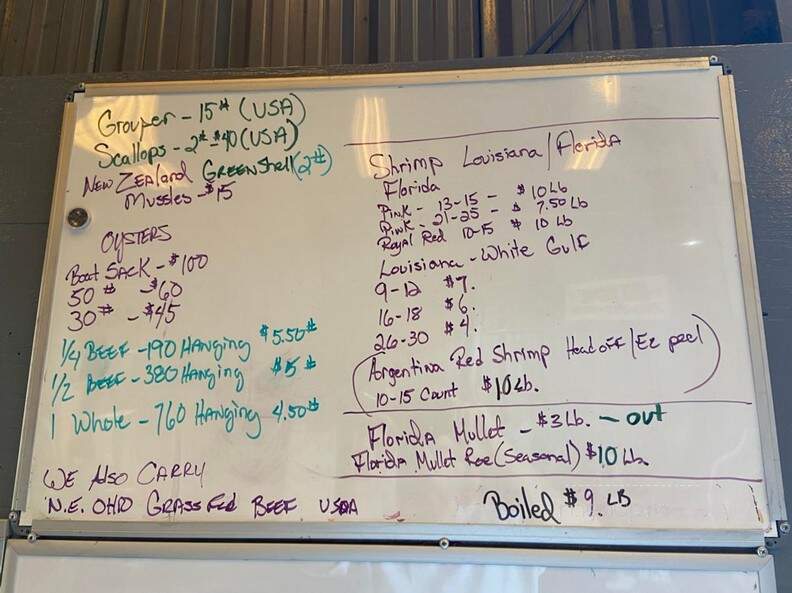 Grouper - 15# (USA)
Scallops - 2# - $40 (USA)
New Zealand Greenshell (2#)
Mussles - $15
Oysters
Boat Sack - $100
50# - $60
30# - $45
1/4 Beef - 190 Hanging $5.50#
1/2 Beef - 380 Hanging $5#
1 Whole - 760 Hanging 4.50#
We Also Carry
N.E. Ohio Grass Fed Beef USDA
Shrimp Louisiana / Florida
Florida
Pink - 13-15 - $10 Lb
Pink - 21-25 - $7.50 Lb
Royal Red 10-15 $10 Lb
Louisiana - White Gulf
9-12 $7.
16-18 $6.
26-30 $4.
(Argentina Red Shrimp Head off / Ez peel
10-15 Count $10 Lb.)
Florida Mullet - $3 Lb. - out
Florida Mullet Roe (Seasonal) $10 Lb
Boiled $9. LB